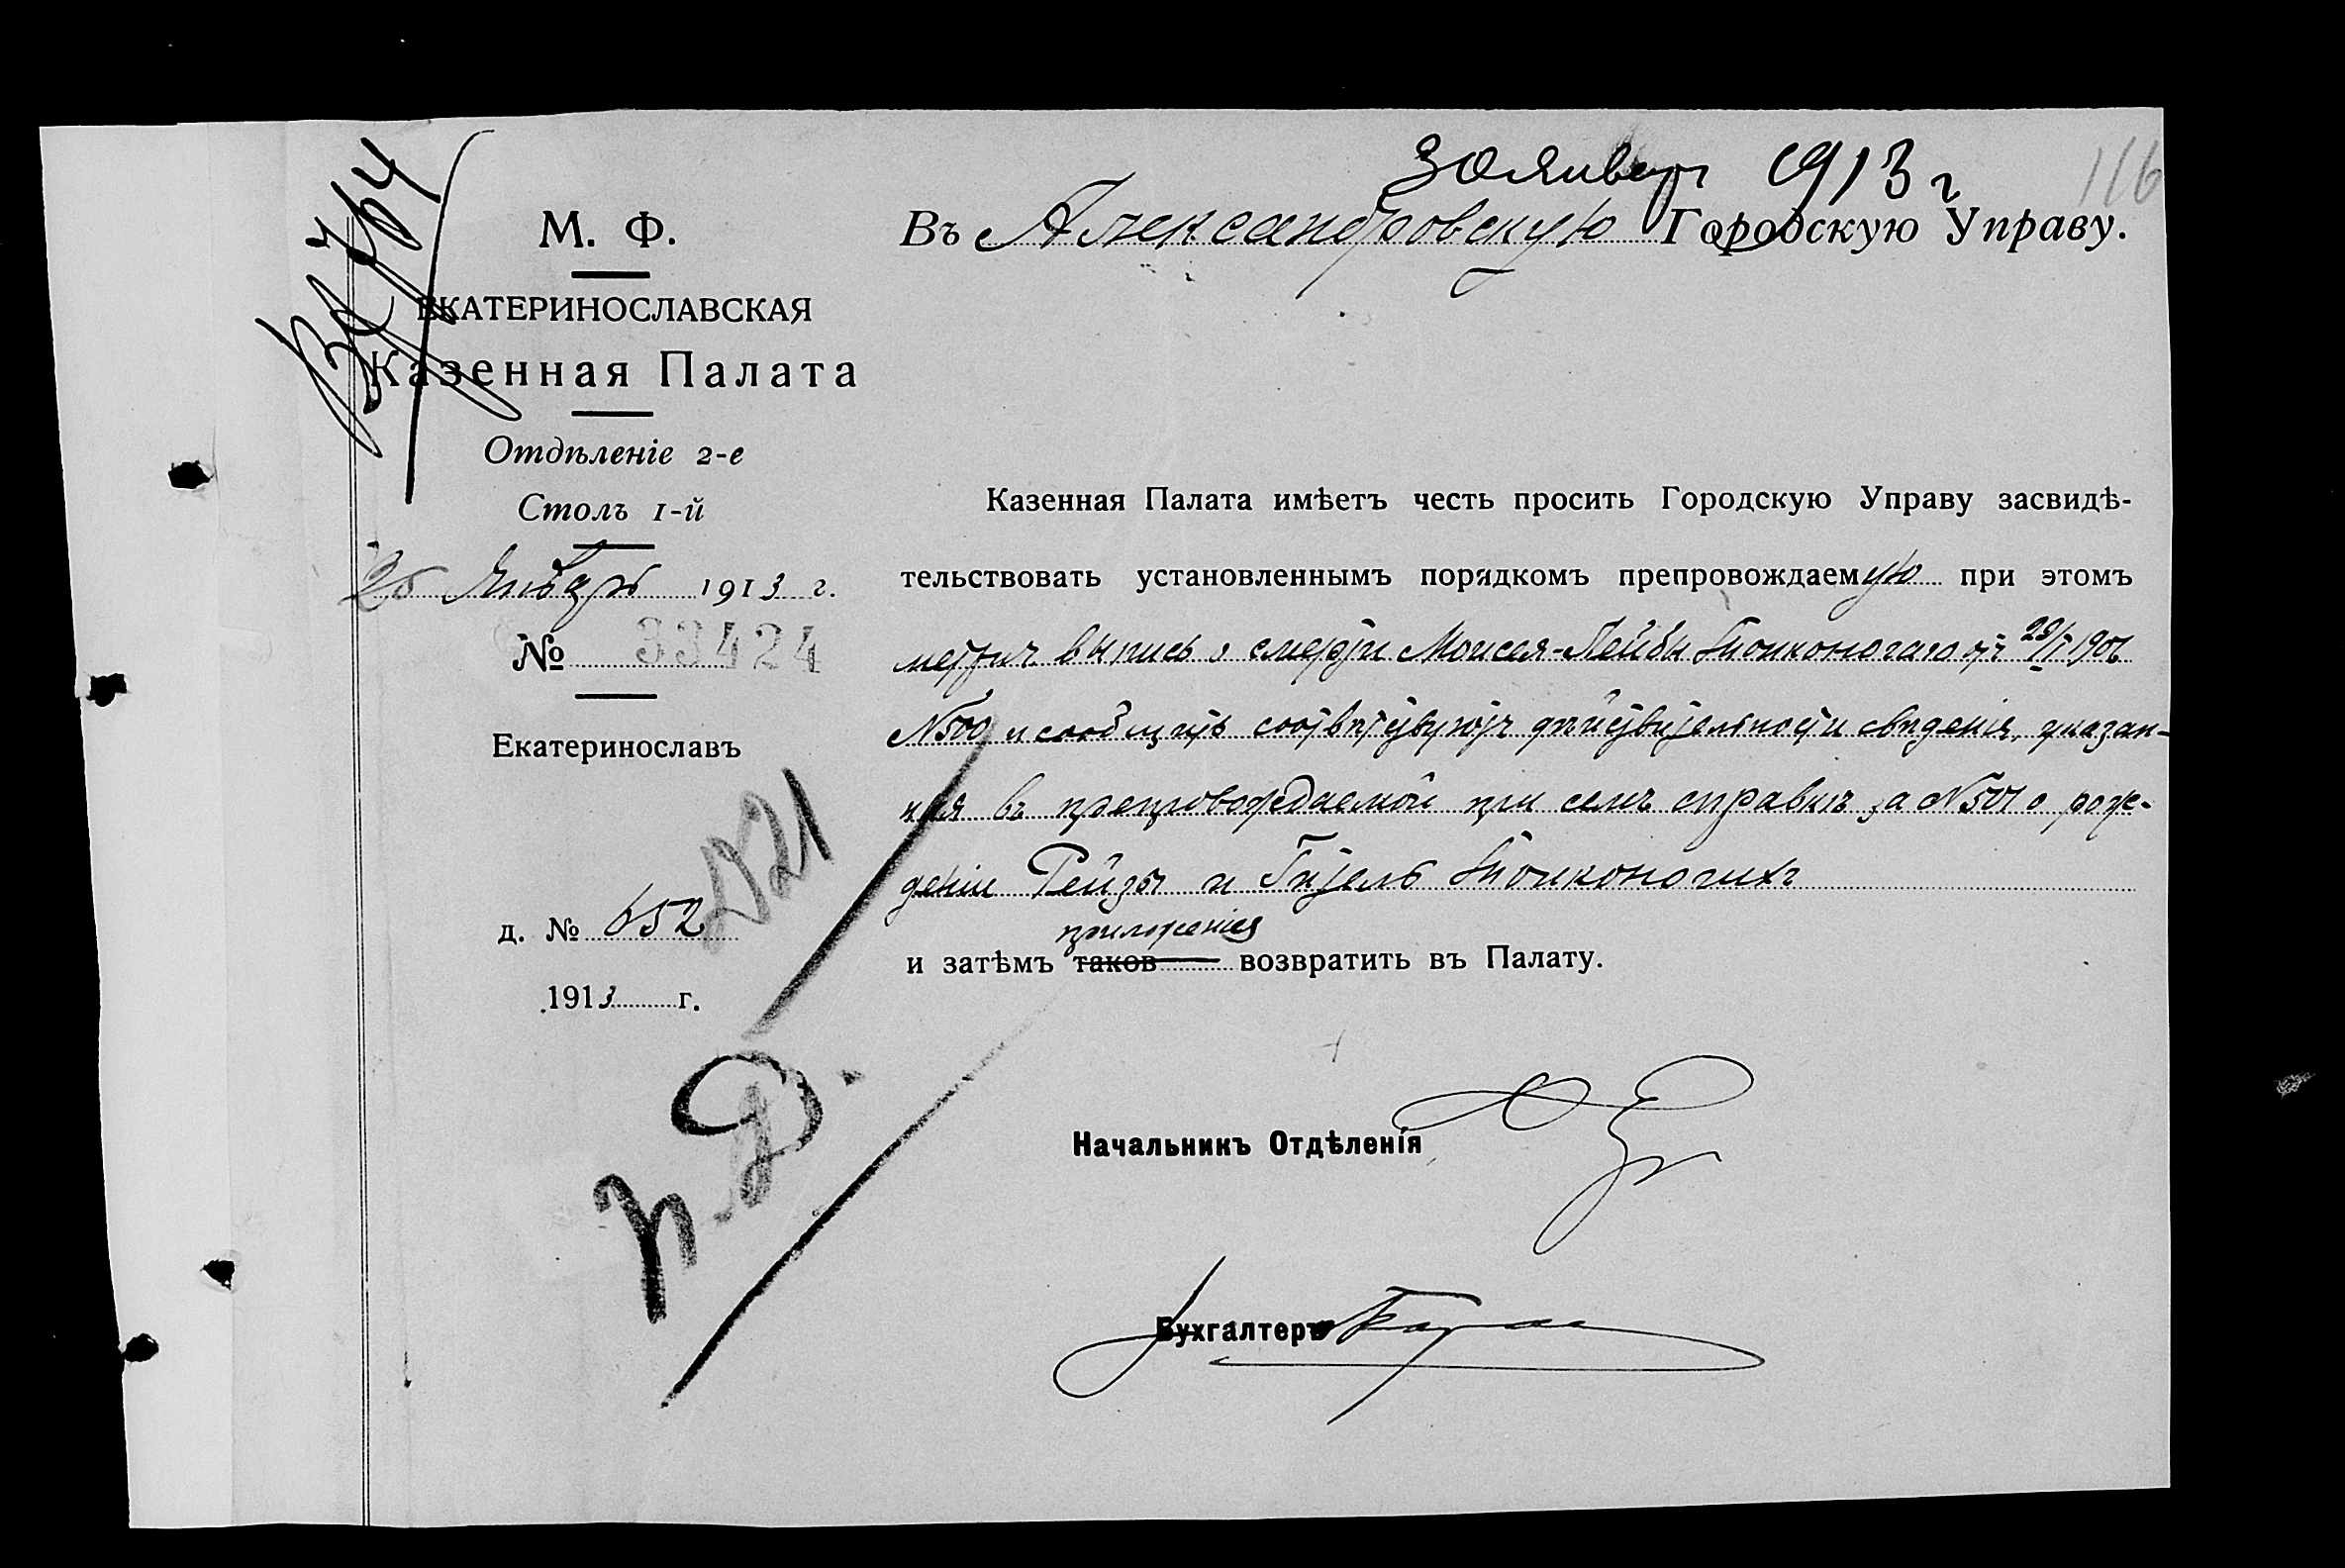 30 январ 1913 г
116
М. Ф.
ЕКАТЕРИНОСЛАВСКАЯ
Казенная Палата
Отдѣленіе 2-е
Столъ 1-й
Январь 1913 г.
№ 33424
Екатеринославъ
д. № 652
1913 г.
Въ Александровскую Городскую Управу.
Казенная Палата имѣетъ честь просить Городскую Управу засвидѣ-
тельствовать установленнымъ порядкомъ препровождаемую при этомъ
метрич. выпись о смерти Моисея-Лейбы Тонконогаго от 29/I 1906
№ 500 и сообщить соотвѣтствуютъ дѣйствительности свѣденія, указан-
ныя въ препровождаемой при семъ справкѣ за № 501 о рож-
деніи Рейзы и Гитель Тонконогихъ
приложенія
и затѣмъ таков возвратить въ Палату.
Начальникъ Отдѣленія
Бухгалтеръ